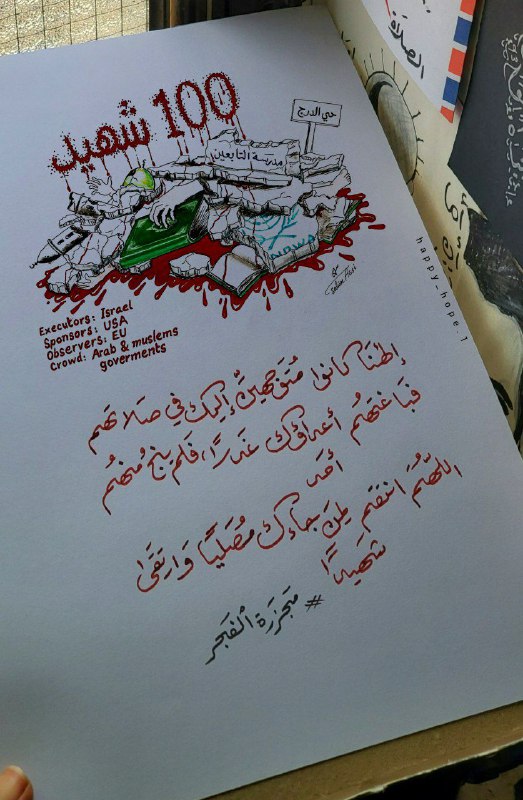 100 شهيد
حي الدرج
مدرسة التابعين
الصلاة
Executors: Israel
Sponsors: USA
Observers: EU
Crowd: Arab & muslems
goverments
happy_hope.1
إلهنَا كانوا مُتوجهينٌ إليك في صلاتهم
فباغتهُم أعداؤك غدرًا، فلم ينج مُنهُم
أحد
اللهُمَّ انتقم لِمَن جاءك مُصَليًا وَارتقَى
شهيدًا
# مَجزَرَة الفَجر